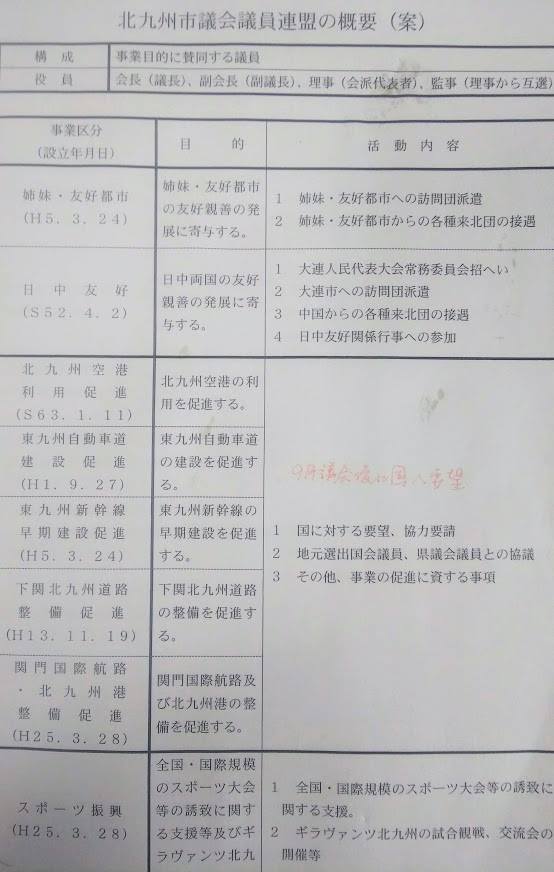 北九州市議会議員連盟の概要（案）
構成 事業目的に賛同する議員
役員 会長（議長）、副会長（副議長）、理事（会派代表者）、監事（理事から互選）
事業区分
（設立年月日）
目的
活動内容
姉妹・友好都市
（H5．3．24）
姉妹・友好都市
の友好親善の発
展に寄与する。
1 姉妹・友好都市への訪問団派遣
2 姉妹・友好都市からの各種来北団の接遇
日中友好
（S52．4．2）
日中両国の友好
親善の発展に寄
与する。
1 大連人民代表大会常務委員会招へい
2 大連市への訪問団派遣
3 中国からの各種来北団の接遇
4 日中友好関係行事への参加
北九州空港
利用促進
（S63．1．11）
北九州空港の利
用を促進する。
東九州自動車道
建設促進
（H1．9．27）
東九州自動車道
の建設を促進す
る。
東九州新幹線
早期建設促進
（H5．3．24）
東九州新幹線の
早期建設を促進
する。
下関北九州道路
整備促進
（H13．11．19）
下関北九州道路
の整備を促進す
る。
関門国際航路
・北九州港
整備促進
（H25．3．28）
関門国際航路及
び北九州港の整
備を促進する。
9月議会後に国へ要望
1 国に対する要望、協力要請
2 地元選出国会議員、県議会議員との協議
3 その他、事業の促進に資する事項
スポーツ振興
（H25．3．28）
全国・国際規模
のスポーツ大会
等の誘致に関す
る支援等及びギ
ラヴァンツ北九
1 全国・国際規模のスポーツ大会等の誘致に
関する支援。
2 ギラヴァンツ北九州の試合観戦、交流会の
開催等